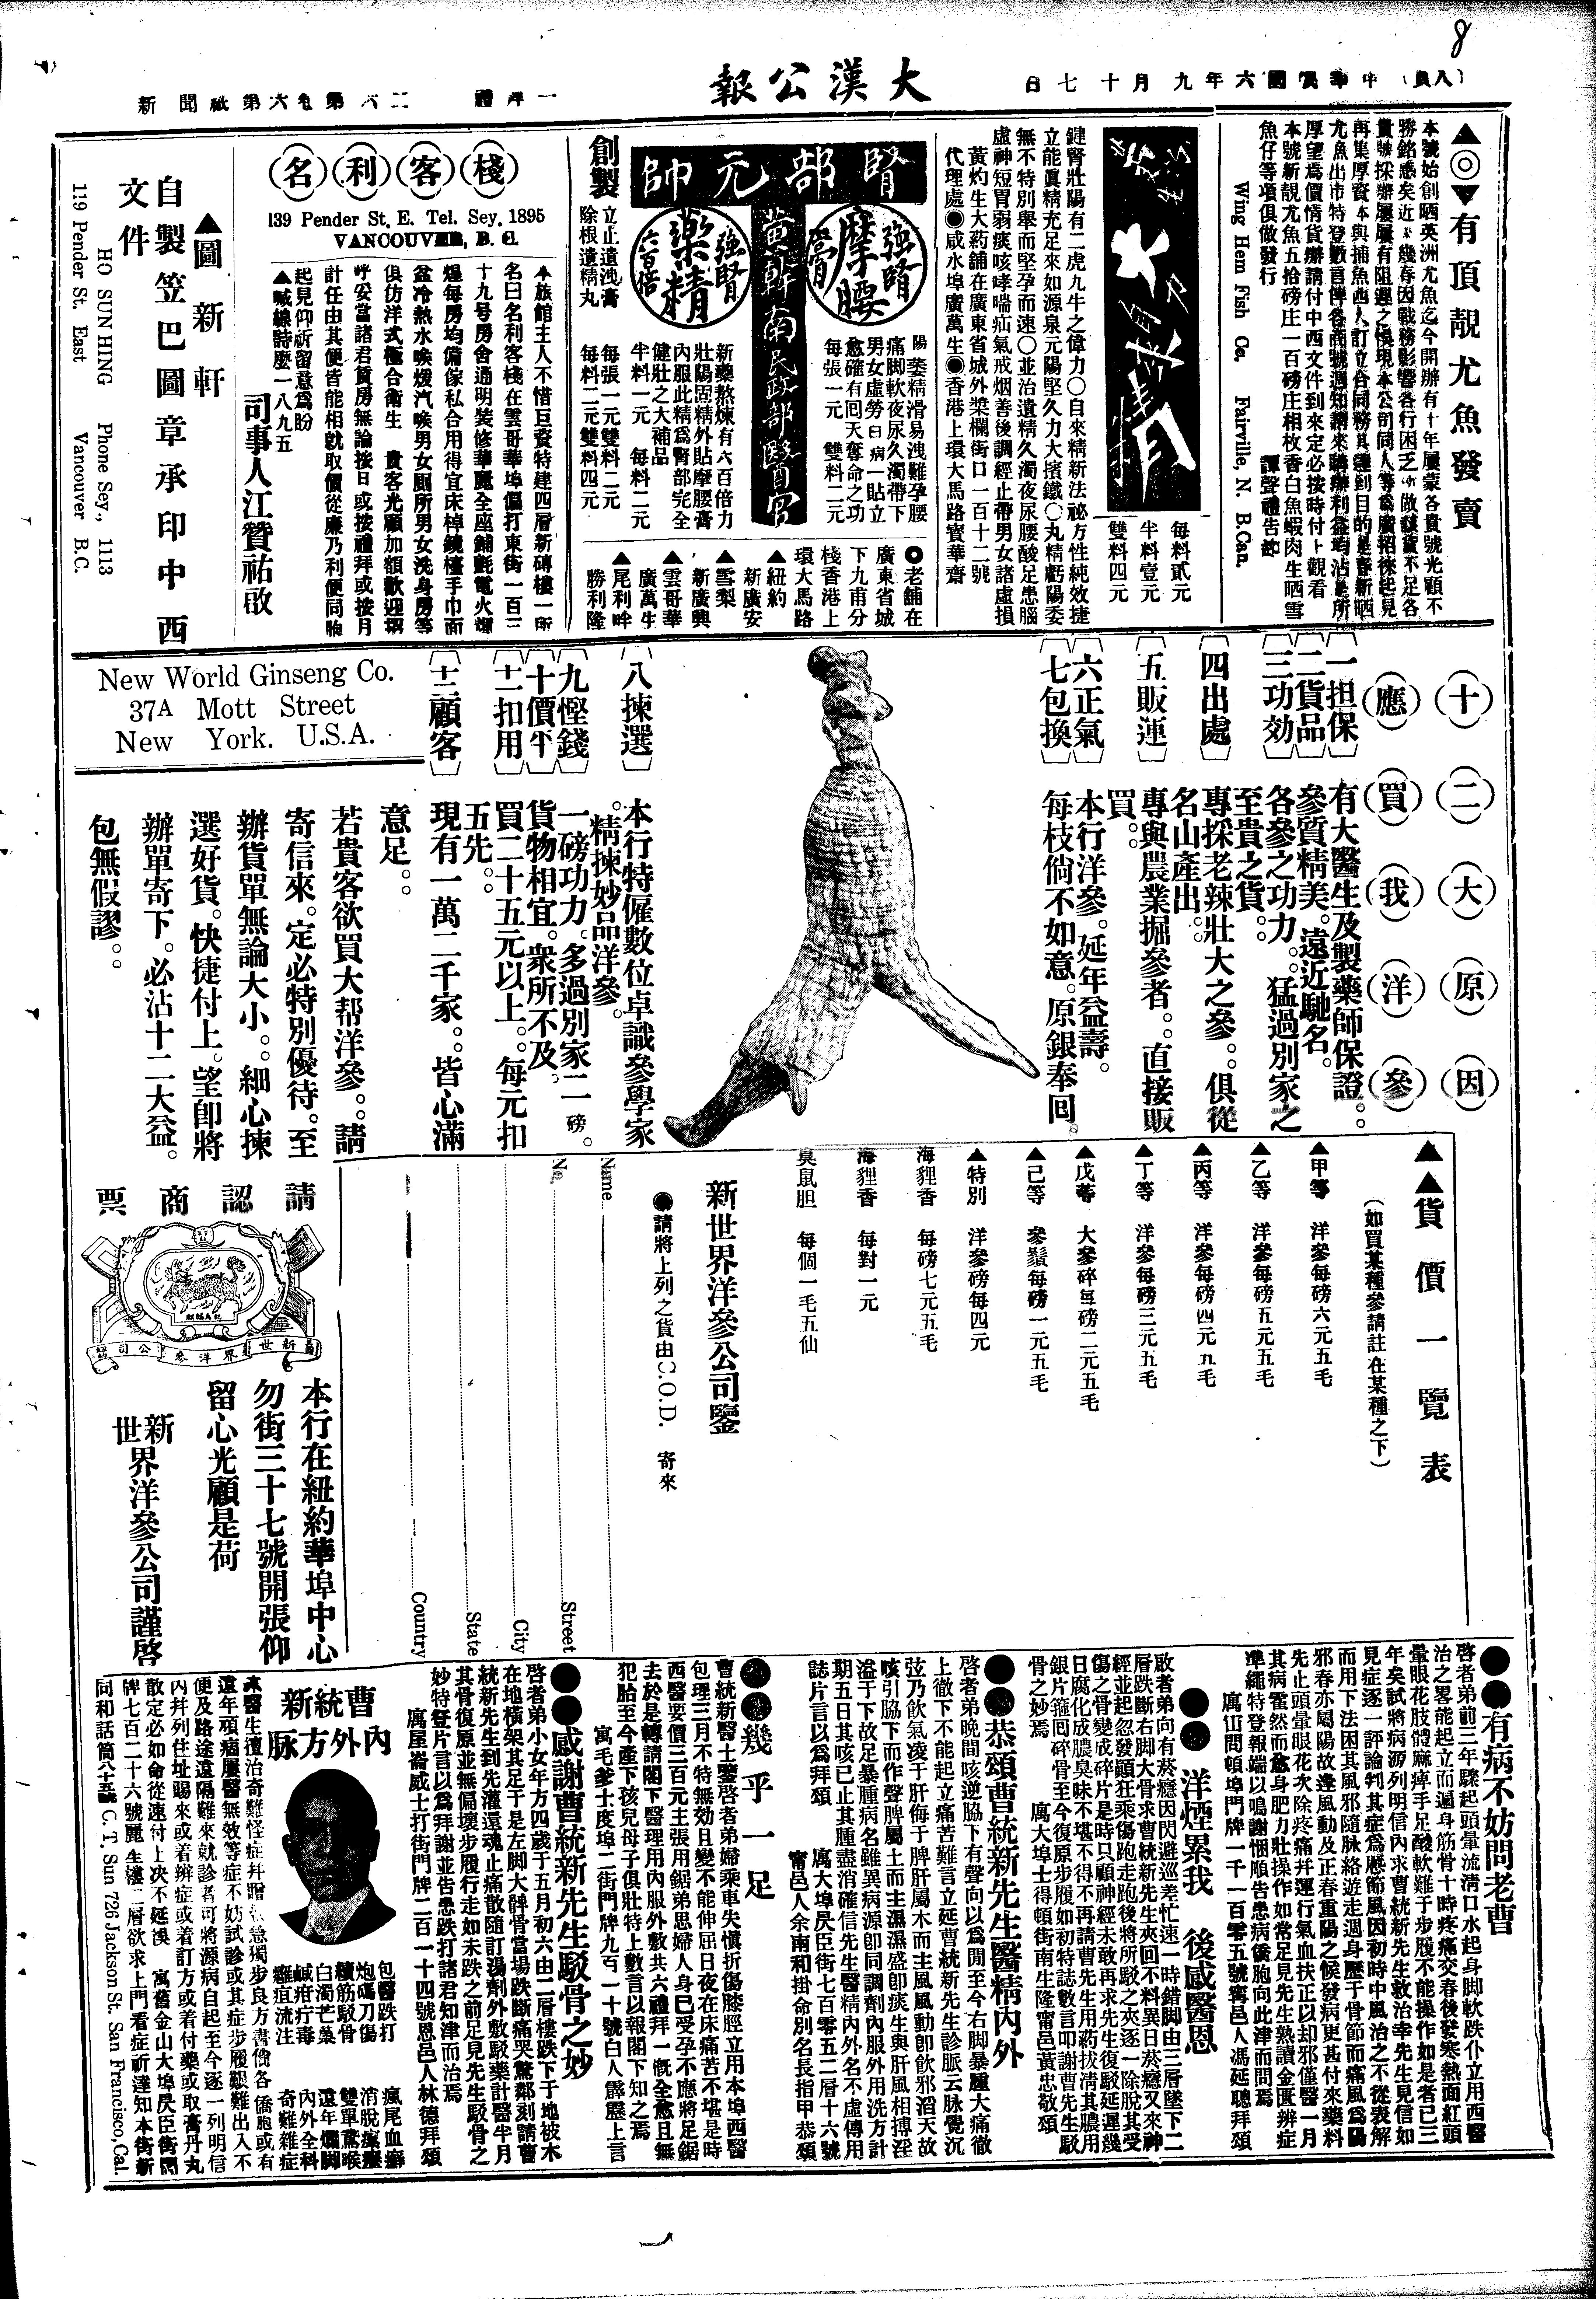 8
日七十月九年六國民華中（頁八）
大漢公報
新聞紙第六卷第
禮拜一
▲◎▼有頂靚尤魚發賣
本號始創晒英洲尤魚迄今開辦有十年屢蒙各貴號光顧不
本號新靚尤魚五拾磅庄一百磅庄相枚香白魚蝦肉生晒雪
魚仔等項俱做發行
譚聲禮告啟
Wing Hem Fish Co. Fairville, N. B.Can.
每料貳元
半料壹元
雙料四元
健腎壯陽有二虎九牛之偉力○自來精新法祕方性純效捷
立能眞精充足來如源泉元陽堅久力大擯鐵○丸精虧陽委
無不特別舉而堅孕而速○並治遺精久濁夜尿腰酸足患腦
虛神短胃弱痰咳哮喘疝氣戒烟善後調經止帶男女諸虛損
黃灼生大葯舖在廣東省城外漿欄街口一百十二號
代理處●咸水埠廣萬生●香港上環大馬路寶華齋
腎部元帥
強腎摩腰膏
黃軒南民政部醫官
強腎藥精六百倍
創製
立止遺洩膏
除根遺精丸
陽萎精滑易洩難孕腰
痛脚軟夜尿久濁帶下
男女虛勞日病一貼立
愈確有囘天奪命之功
每張一元 雙料二元
新藥熬煉有六百倍力
壯陽固精外貼摩腰膏
內服此精爲腎部完全
健壯之大補品
半料一元 每料二元
每張一元雙料二元
每料二元雙料四元
◎老舖在
廣東省城
下九甫分
棧香港上
環大馬路
▲紐約
新廣安
▲雪梨
新廣興
▲雲哥華
廣萬生
▲尾利畔
勝利隆
名利客棧
139 Pender St. E. Tel. Sey. 1895
VANCOUVER, B. C.
本旅館主人不惜巨資特建四層新磚樓一所
名曰名利客棧在雲哥華埠偏打東街一百三
十九號房舍通明裝修華麗全座鋪氈電火煇
煌每房均備傢私合用得宜床棹鏡檯手巾面
盆冷熱水喉煖汽喉男女厠所男女洗身房等
俱仿洋式極合衛生 貴客光顧加額歡迎招
呼妥當諸君賃房無論按日或按禮拜或按月
計任由其便皆能相就取價從廉乃利便同胞
起見仰祈留意爲盼
▲喊線詩麽一八九五
司事人江贊祐啟
▲圖新軒
自製笠巴圖章承印中西
文件
HO SUN HING Phone Sey., 1113
119 Pender St. East Vancouver B.C.
十二大原因
應買我洋參
一担保 有大醫生及製藥師保證。
二貨品 參質精美。遠近馳名。
三功効 各參之功力。猛過別家之
至貴之貨。
四出處 專採老辣壯大之參。俱從
名山產出。
五販運 專與農業掘參者。直接販
買。
六正氣 本行洋參。延年益壽。
七包換 每枝倘不如意。原銀奉囘。
八揀選 本行特僱數位卓識參學家
。精揀妙品洋參。
九慳錢 一磅功力。多過別家二磅。
十價平 貨物相宜。衆所不及。
十一扣用 買二十五元以上。每元扣
五先。
十二顧客 現有一萬二千家。皆心滿
意足。
若貴客欲買大帮洋參。請
寄信來。定必特別優待。至
辦貨單無論大小。細心揀
選好貨。快捷付上。望卽將
辦單寄下。必沾十二大益。
包無假謬。
New World Ginseng Co.
37A Mott Street
New York. U.S.A.
▲▲貨價一覽表
（如買某種參請註在某種之下）
▲甲等 洋參每磅六元五毛
▲乙等 洋參每磅五元五毛
▲丙等 洋參每磅四元五毛
▲丁等 洋參每磅三元五毛
▲戊等 大參碎每磅二元五毛
▲己等 參鬚每磅一元五毛
▲特別 洋參磅每四元
海狸香 每磅七元五毛
海狸香 每對一元
臭鼠胆 每個一毛五仙
新世界洋參公司鑒
●請將上列之貨由C.O.D. 寄來
Name
No. Street
City
State
Country
請認商票
新世界洋參公司
本行在紐約華埠中心
勿街三十七號開張仰
留心光顧是荷
新世界洋參公司謹啓
●●有病不妨問老曹
啓者弟前三年驟起頭暈流淸口水起身脚軟跌仆立用西醫
治之畧能起立而遍身筋骨十時疼痛交春後發寒熱面紅頭
暈眼花肢體麻痺手足酸軟難于步履不能操作如是者已三
年矣試將病源列明信內求曹統新先生救治幸先生見信如
見症逐一評論判其症爲歷節風因初時中風治之不從表解
而用下法困其風邪隨脉絡遊走週身歷于骨節而痛風爲陽
邪春亦屬陽故逢風動及正春重陽之候發病更甚付來藥料
先止頭暈眼花次除疼痛幷運行氣血扶正以却邪僅醫一月
其病霍然而愈身肥力壯操作如常足見先生熟讀金匱辨症
準繩特登報端以鳴謝悃順告患病僑胞向此津而問焉
寓山問頓埠門牌一千一百零五號寗邑人馮延聰拜頌
●●洋煙累我 後感醫恩
敢者弟向有菸癮因閃避巡差忙速一時錯脚由三層墜下二
層跌斷右脚大骨求曹統新先生夾回不料異日菸癮又來神
經並起忽發顛狂乘傷跑走跑後將所駁之夾逐一除脫其受
傷之骨變成碎片是時只顧神經未敢再求先生復駁延遲幾
日腐化成膿臭味不堪不得不再請曹先生用葯拔淸其膿用
銀片箍囘碎骨至今復原步履如初特誌數言叩謝曹先生駁
骨之妙焉 寓大埠士得頓街南生隆寗邑黃忠敬頌
●●恭頌曹統新先生醫精內外
啓者弟晚間咳逆脇下有聲向以爲閒至今右脚暴腫大痛徹
上徹下不能起立痛苦難言立延曹統新先生診脈云脉覺沉
弦乃飲氣凌于肝侮于脾肝屬木而主風風動卽飲邪滔天故
咳引脇下而作聲脾屬土而主濕濕盛卽痰生與肝風相搏淫
溢于下故足暴腫病名雖異病源卽同調劑內服外用洗方計
期五日其咳已止其腫盡消確信先生醫精內外名不虛傳用
誌片言以爲拜頌 寓大埠昃臣街七百零五二層十六號
寗邑人余南和掛命別名長指甲恭頌
●●幾乎一足
曹統新醫士鑒啓者弟婦乘車失愼折傷膝脛立用本埠西醫
包理三月不特無効且變不能伸屈日夜在床痛苦不堪是時
西醫要價三百元主張用鋸弟思婦人身已受孕不應將足鋸
去於是轉請閣下醫理用內服外敷共六禮拜一慨全愈且無
犯胎至今產下孩兒母子俱壯特上數言以報閣下知之焉
寓毛爹士度埠二街門牌九百一十號白人霹靂上言
●●感謝曹統新先生駁骨之妙
啓者弟小女年方四歲于五月初六由二層樓跌下于地被木
在地橫架其足于是左脚大髀骨當塲跌斷痛哭驚鄰刻請曹
統新先生到先灌還魂止痛散隨訂湯劑外敷駁藥計醫半月
其骨復原並無偏壞步履行走如未跌之前足見先生駁骨之
妙特登片言以爲拜謝並告患跌打諸君知津而治焉
寓屋崙威士打街門牌二百一十四號恩邑人林德拜頌
曹統新
內外方脈
包醫跌打
炮碼刀傷
續筋駁骨
白濁芒菓
鹹疳疔毒
癰疽流注
瘋尾血癬
消脫瘰癧
雙單鵞喉
遠年爛脚
內外全科
奇難雜症
遠年頑病屢醫無效等症不妨試診或其症步履艱難出入不
便及路途遠隔難來就診者可將源病自起至今逐一列明信
內幷列住址賜來或着辨症或着訂方或着付藥或取膏丹丸
散定必如命從速付上决不延悞 寓舊金山大埠昃臣街門
牌七百二十六號麗生樓二層欲求上門看症祈達知本街新
同和話筒八十五號 C. T. Sun 726 Jackson St. San Francisco, Cal.